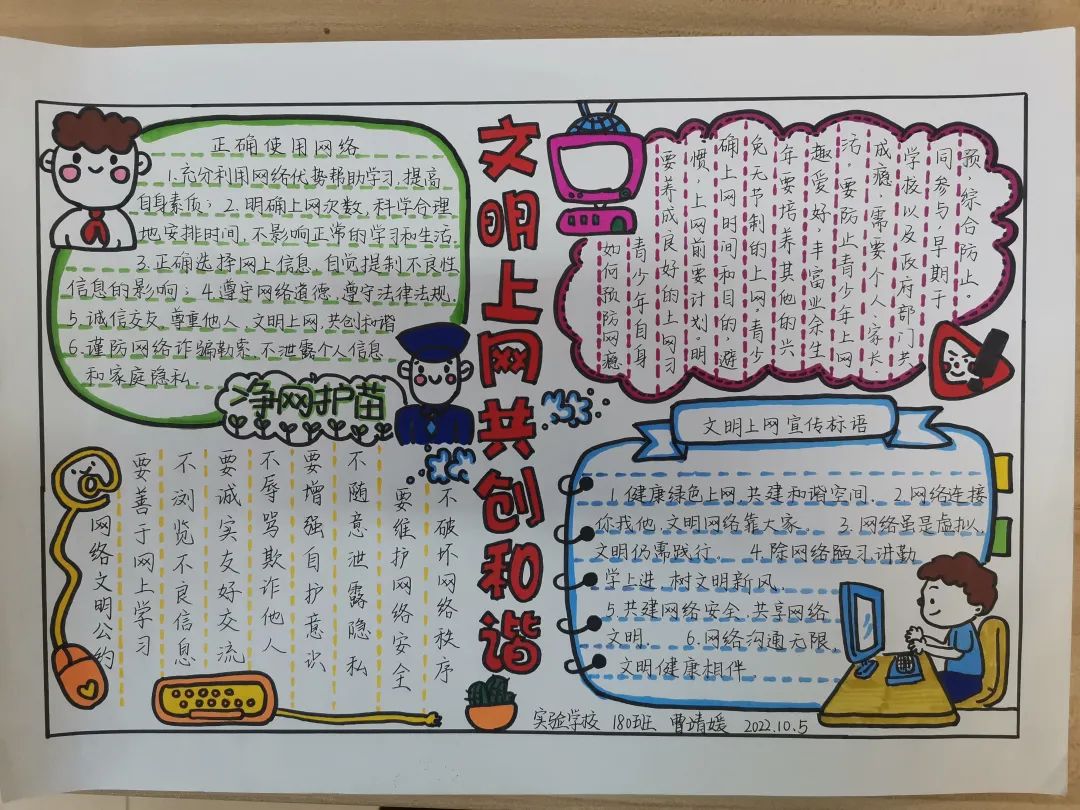 文明上网共创和谐
正确使用网络
1.充分利用网络优势帮助学习,提高
自身素质;2.明确上网次数,科学合理
地安排时间,不影响正常的学习和生活.
3.正确选择网上信息,自觉提制不良性
信息的影响;4.遵守网络道德,遵守法律法规.
5.诚信交友,尊重他人,文明上网,共创和谐
6.谨防网络诈骗勒索,不泄露个人信息
和家庭隐私.
净网护苗
如何预防网瘾
青少年自身
要养成良好的上网习
惯,上网前要计划。明
确上网时间和目的,避
免无节制的上网。青少
年要培养其他的兴
趣爱好,丰富业余生
活,要防止青少年上网
成瘾,需要个人、家长、
学校以及政府部门共
同参与,早期干
预,综合防止。
网络文明公约
要善于网上学习
不浏览不良信息
要诚实友好交流
不辱骂欺诈他人
要增强自护意识
不随意泄露隐私
要维护网络安全
不破坏网络秩序
文明上网宣传标语
1.健康绿色上网,共建和谐空间. 2.网络连接
你我他,文明网络靠大家. 3.网络虽是虚拟,
文明仍需践行. 4.除网络陋习讲勤
学上进 树文明新风.
5.共建网络安全 共享网络
文明. 6.网络沟通无限,
文明健康相伴.
实验学校 180班 曹靖媛 2022.10.5